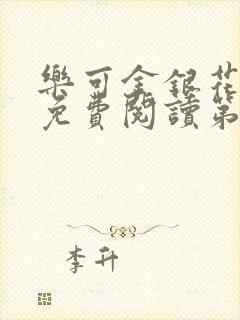 樂可金銀花
免費閱讀第
李升